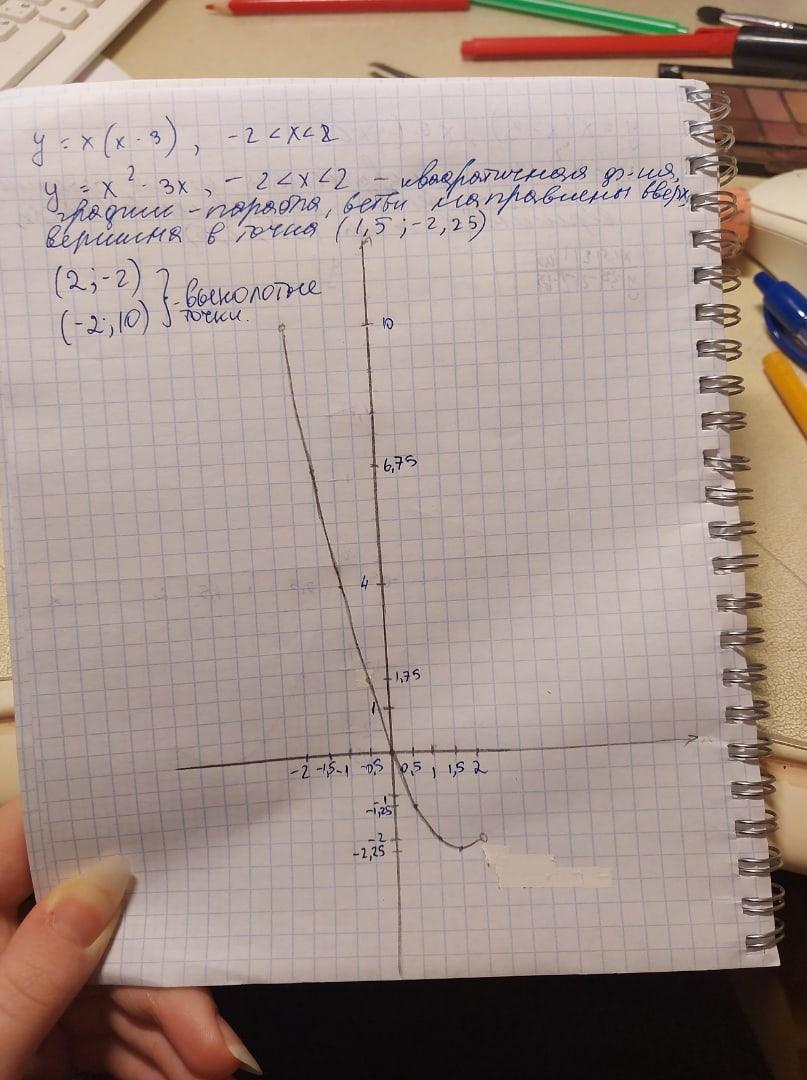 y = x(x-3), -2<x<2
y = x²-3x, -2<x<2 - квадратичная ф-ия,
график - парабола, ветви направлены вверх,
вершина в точка (1,5; -2,25)
(2; -2)
(-2; 10)
} - выколотые
точки.
10
6,75
4
1,75
1
-2 -1,5 -1 -0,5 0,5 1 1,5 2
-1
-1,25
-2
-2,25